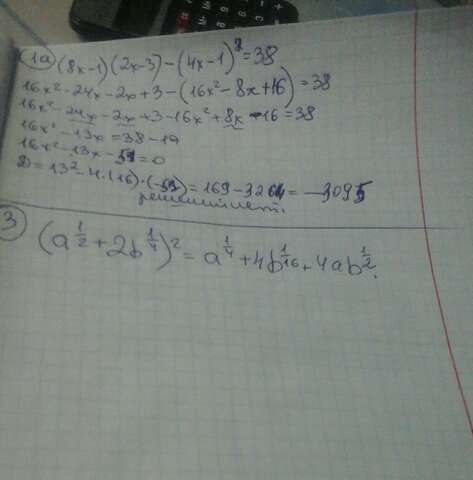 1а) (8x-1)(2x-3)-(4x-1)²=38
16x²-24x-2x+3-(16x²-8x+16)=38
16x²-24x-2x+3-16x²+8x-16=38
16x²-13x=38-19
16x²-13x-51=0
D=13²-4·(16)·(-51)=169-3264=-3095
решений нет.
3) (a^{1/2}+2b^{1/4})²=a^{1/4}+4b^{1/16}+4ab^{1/2}.